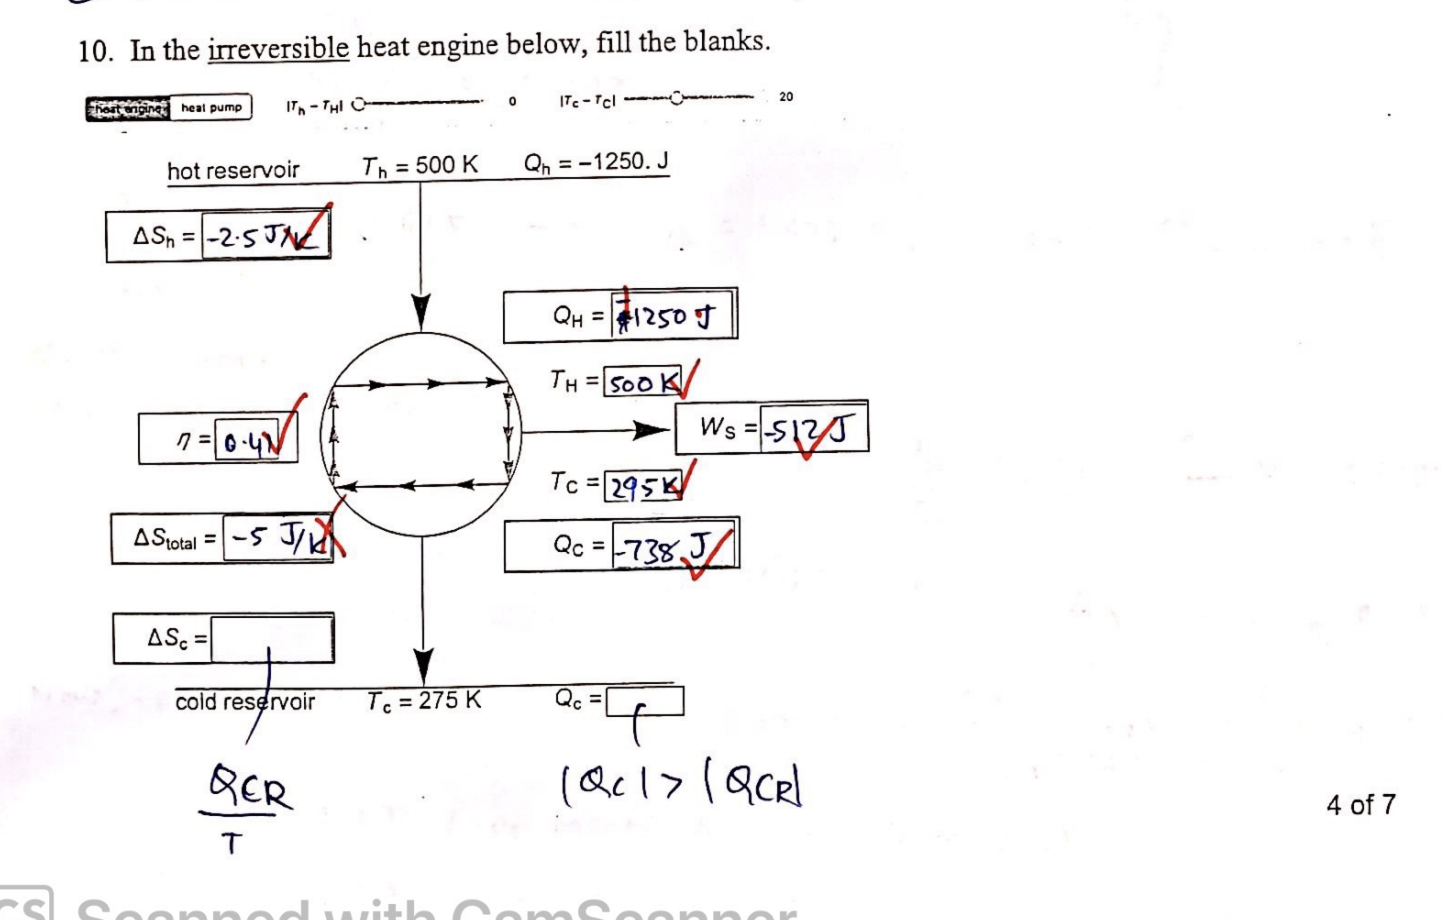 10. In the irreversible heat engine below, fill the blanks.
heat engine heat pump |Th - TH| 0 |Tc - TC| 20
hot reservoir Th = 500 K Qh = -1250. J
ΔSh = -2.5 J/K
QH = 1250 J
TH = 500 K
η = 0.41
Ws = -512 J
TC = 295 K
ΔStotal = -5 J/K
QC = -738 J
ΔSc =
cold reservoir Tc = 275 K Qc =
QCR
T
|Qc| > |QCR|
4 of 7
CS Scanned with CamScanner